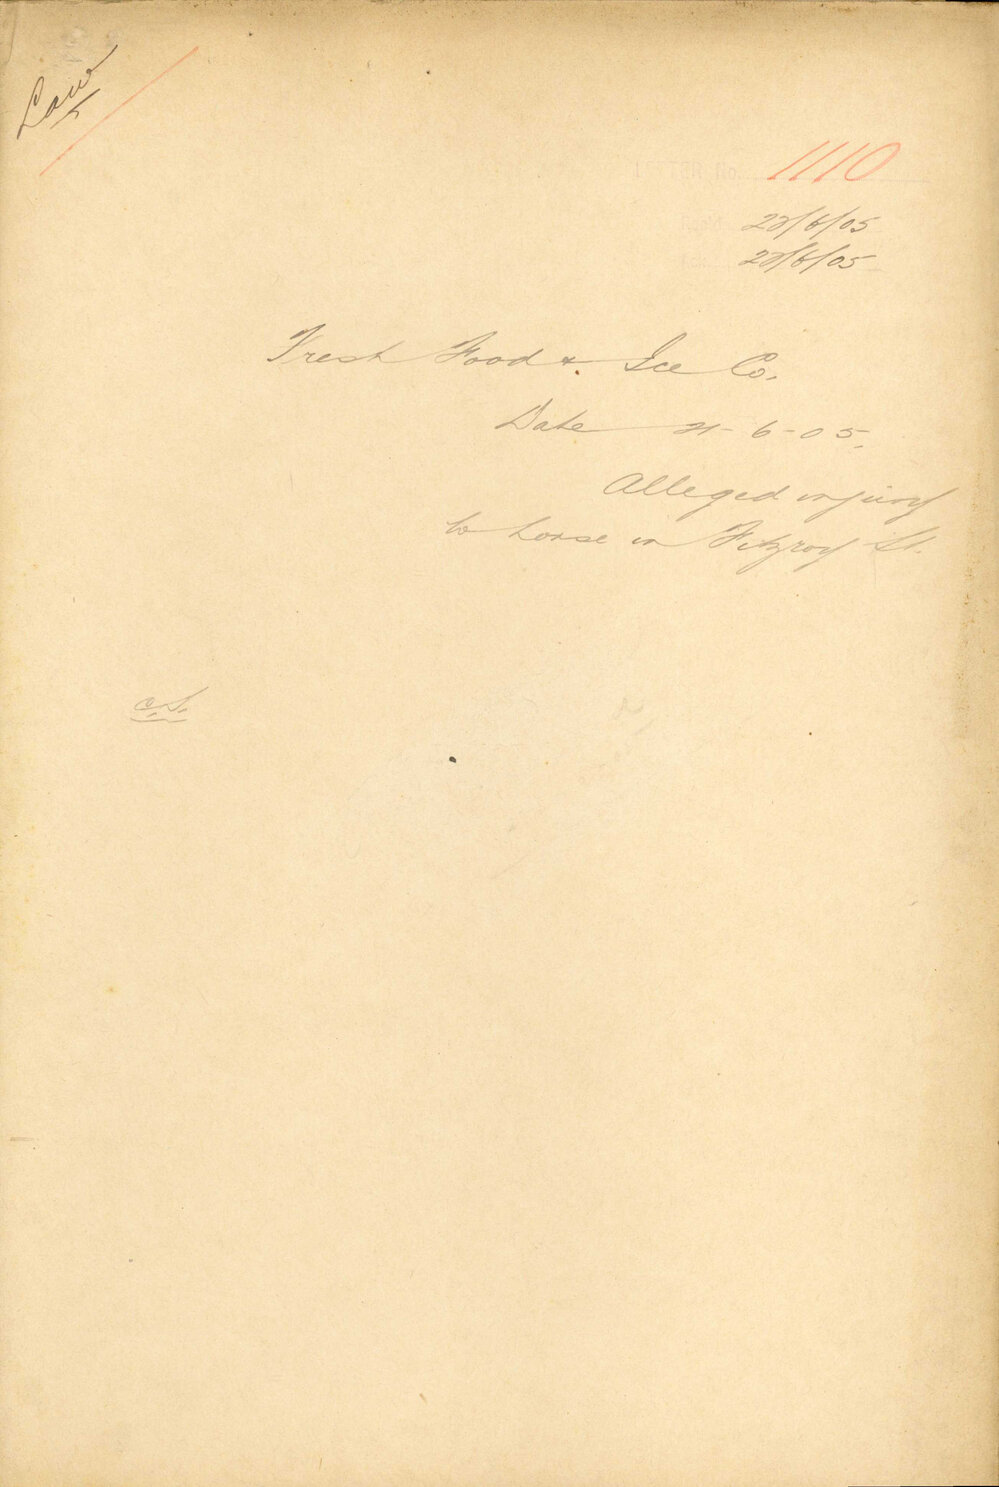 Law
LETTER No. 1110
22/6/05
22/6/05
Fresh Food & Ice Co.
Date 21-6-05.
Alleged injury
to horse in Fitzroy St.